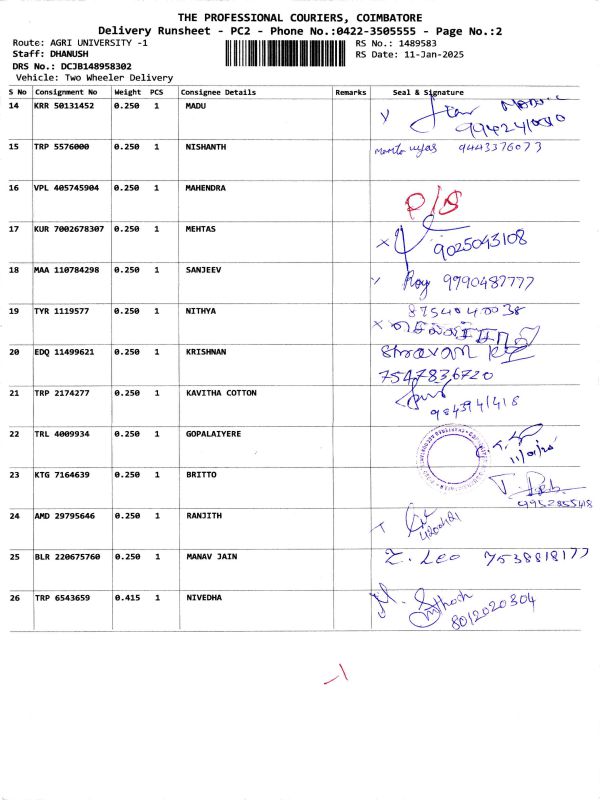 THE PROFESSIONAL COURIERS, COIMBATORE
Delivery Runsheet - PC2 - Phone No.:0422-3505555 - Page No.:2
Route: AGRI UNIVERSITY -1 RS No.: 1489583
Staff: DHANUSH RS Date: 11-Jan-2025
DRS No.: DCJB148958302
Vehicle: Two Wheeler Delivery
S No Consignment No Weight PCS Consignee Details Remarks Seal & Signature
14 KRR 50131452 0.250 1 MADU
15 TRP 5576000 0.250 1 NISHANTH 9443376073
16 VPL 405745904 0.250 1 MAHENDRA P/S
17 KUR 7002678307 0.250 1 MEHTAS 9025043108
18 MAA 110784298 0.250 1 SANJEEV Roy 9790487777
19 TYR 1119577 0.250 1 NITHYA 8754040038
20 EDQ 11499621 0.250 1 KRISHNAN Shravan
7547836720
21 TRP 2174277 0.250 1 KAVITHA COTTON 9843941418
22 TRL 4009934 0.250 1 GOPALAIYERE
23 KTG 7164639 0.250 1 BRITTO
24 AMD 29795646 0.250 1 RANJITH
25 BLR 220675760 0.250 1 MANAV JAIN Z. LEO 7538818177
26 TRP 6543659 0.415 1 NIVEDHA 8012020304